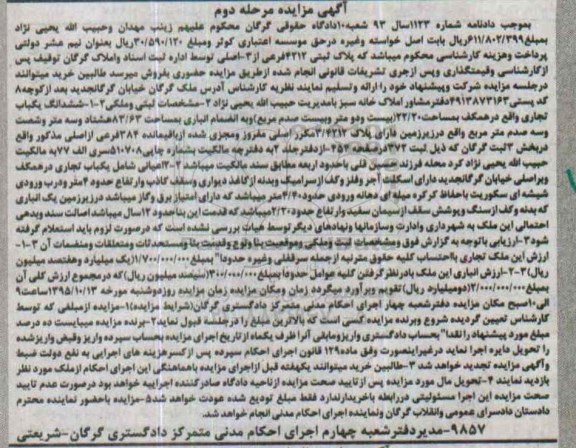 آگهی مزایده مرحله دوم
بموجب دادنامه شماره ۱۱۲۳سال ۹۳ شعبه۱۰دادگاه حقوقی گرگان محکوم علیهم زینب مهدان وحبیب الله یحیی نژاد
بمبلغ۶۱۱/۸۰۲/۳۹۹ریال بابت اصل خواسته وغیره درحق موسسه اعتباری کوثر ومبلغ ۳۰/۵۹۰/۱۲۰ریال بعنوان نیم عشر دولتی
پرداخت وهزینه کارشناسی محکوم میباشد که پلاک ثبتی ۴۲۱۲فرعی از۳-اصلی توسط اداره ثبت اسناد واملاک گرگان توقیف پس
ازکارشناسی وقیمتگذاری وپس ازجری تشریفات قانونی انجام شده ازطریق مزایده حضوری بفروش میرسد طالبین خرید میتوانند
درجلسه مزایده شرکت وپیشنهاد خود را ارائه وتسلیم نمایند نظریه کارشناس آدرس ملک گرگان خیابان گرگانجدید بعد ازکوچه۸
کد پستی۴۹۱۳۸۷۳۱۶۳دفترمشاور املاک خانه سبز بامدیریت حبیب الله یحیی نژاد ۲-مشخصات ثبتی وملکی۲-۱-ششدانگ یکباب
تجاری واقع درهمکف بمساحت۲۲/۲۰(بیست ودو متر وبیست صدم متر مربع)وبه انضمام انباری بمساحت ۸۳/۶۳هشتاد وسه متر وشصت
وسه صدم متر مربع واقع درزیرزمین دارای پلاک ۴۲۱۲/۳مکرر اصلی مفروز ومجزی شده ازباقیمانده ۳۸۴فرعی ازاصلی مذکور واقع
دربخش ۲ثبت گرگان که ذیل ثبت ۳۷۲درصفحه ۴۵۴-ازدفترجلد ۲به دفترچه مالکیت بشماره چاپی۵۱۰۷۰۸سری الف ۷۷به مالکیت
حبیب الله یحیی نژاد کرد محله فرزند حسین قلی باحدود اربعه مطابق سند مالکیت میباشد ۲-۲اعیانی شامل یکباب تجاری درهمکف
وبراصلی خیابان گرگانجدید دارای اسکلت آجر وفلز وکف ازسرامیک وبدنه ازکاغذ دیواری وسقف کاذب وارتفاع حدود ۴متر ودرب ورودی
شیشه ای سکوریت باحفاظ کرکره میله ای دهانه ورودی حدود۴/۴۰متر میباشد که دارای امتیاز برق وگاز میباشد درزیرزمین یک انباری
که بدنه وکف ازسنگ وپوشش سقف ازسیمان سفید وارتفاع حدود ۲/۲۰میباشد که قدمت این بناحدود ۱۲سال میباشد اصالت سند وبدهی
احتمالی این ملک به شهرداری وادارت وسازمانها ونهادهای دیگر توسط هیات بررسی نشده است که درصورت لزوم باید استعلام گرفته
شود ۳-ارزیابی باتوجه به گزارش فوق ومشخصات ثبت وملکی وموقعیت بنا ونوع وقدمت بنا ومستحدثات ومتعلقات ومنضمات آن ۳-۱-
ارزش این ملک تجاری بااحتساب کلیه حقوق مترتبه ازجمله سرقفلی وغیره حدودا" بمبلغ۱/۷۰۰/۰۰۰/۰۰۰(یک میلیارد وهفتصد میلیون
ریال)۳-۲-ارزش انباری این ملک بادرنظرگرفتن کلیه عوامل حدودا بمبلغ۳۰۰/۰۰۰/۰۰۰(سیصد میلیون ریال)که درمجموع ارزش کلی آن
۲/۰۰۰/۰۰۰/۰۰۰(دومیلیارد ریال)تقویم وبرآورد میگردد زمان ومکان مزایده زمان مزایده روزدوشنبه مورخه ۱۳۹۵/۱۰/۱۳ساعت۹
الی۱۰صبح مکان مزایده دفترشعبه چهار اجرای احکام مدنی متمرکز دادگستری گرگان(شرایط مزایده)۱-مزایده ازمبلغی که توسط
کارشناس تعیین گردیده شروع وبرنده مزایده کسی است که بالاترین مبلغ را درجلسه قبول نماید۲-برنده مزایده میبایست ده درصد
مبلغ مورد پیشنهاد را نقدا" بحساب دادگستری واریزومابقی آنرا ظرف یکماه از تاریخ اجرای مزایده بحساب سپرده واریز وفیض واریزشده
را تحویل دایره اجرا نماید درغیراینصورت وفق ماده۱۲۹ قانون اجرای احکام سپرده پس ازکسرهزینه های اجرایی به نفع دولت ضبط
وآگهی مزایده تجدید خواهد شد ۳-طالبین خرید میتوانند یکهفته قبل ازاجرای مزایده باهماهنگی این اجرای احکام ازملک مورد نظر
بازدید نمایند ۴-تحویل مال مورد مزایده پس ازتایید صحت مزایده ازناحیه دادگاه صادرکننده اجراییه خواهد بود درصورت عدم تایید
صحت مزایده این اجرا مسئولیتی درقبال خریدارندارد فقط مبلغ تودیع شده عودت خواهد شد۵-مزایده باحضور نماینده محترم
دادستان دادسرای عمومی وانقلاب گرگان ونماینده اجرای احکام مدنی انجام خواهد شد.
۹۸۵۷-مدیردفترشعبه چهارم اجرای احکام مدنی متمرکز دادگستری گرگان-شریعتی